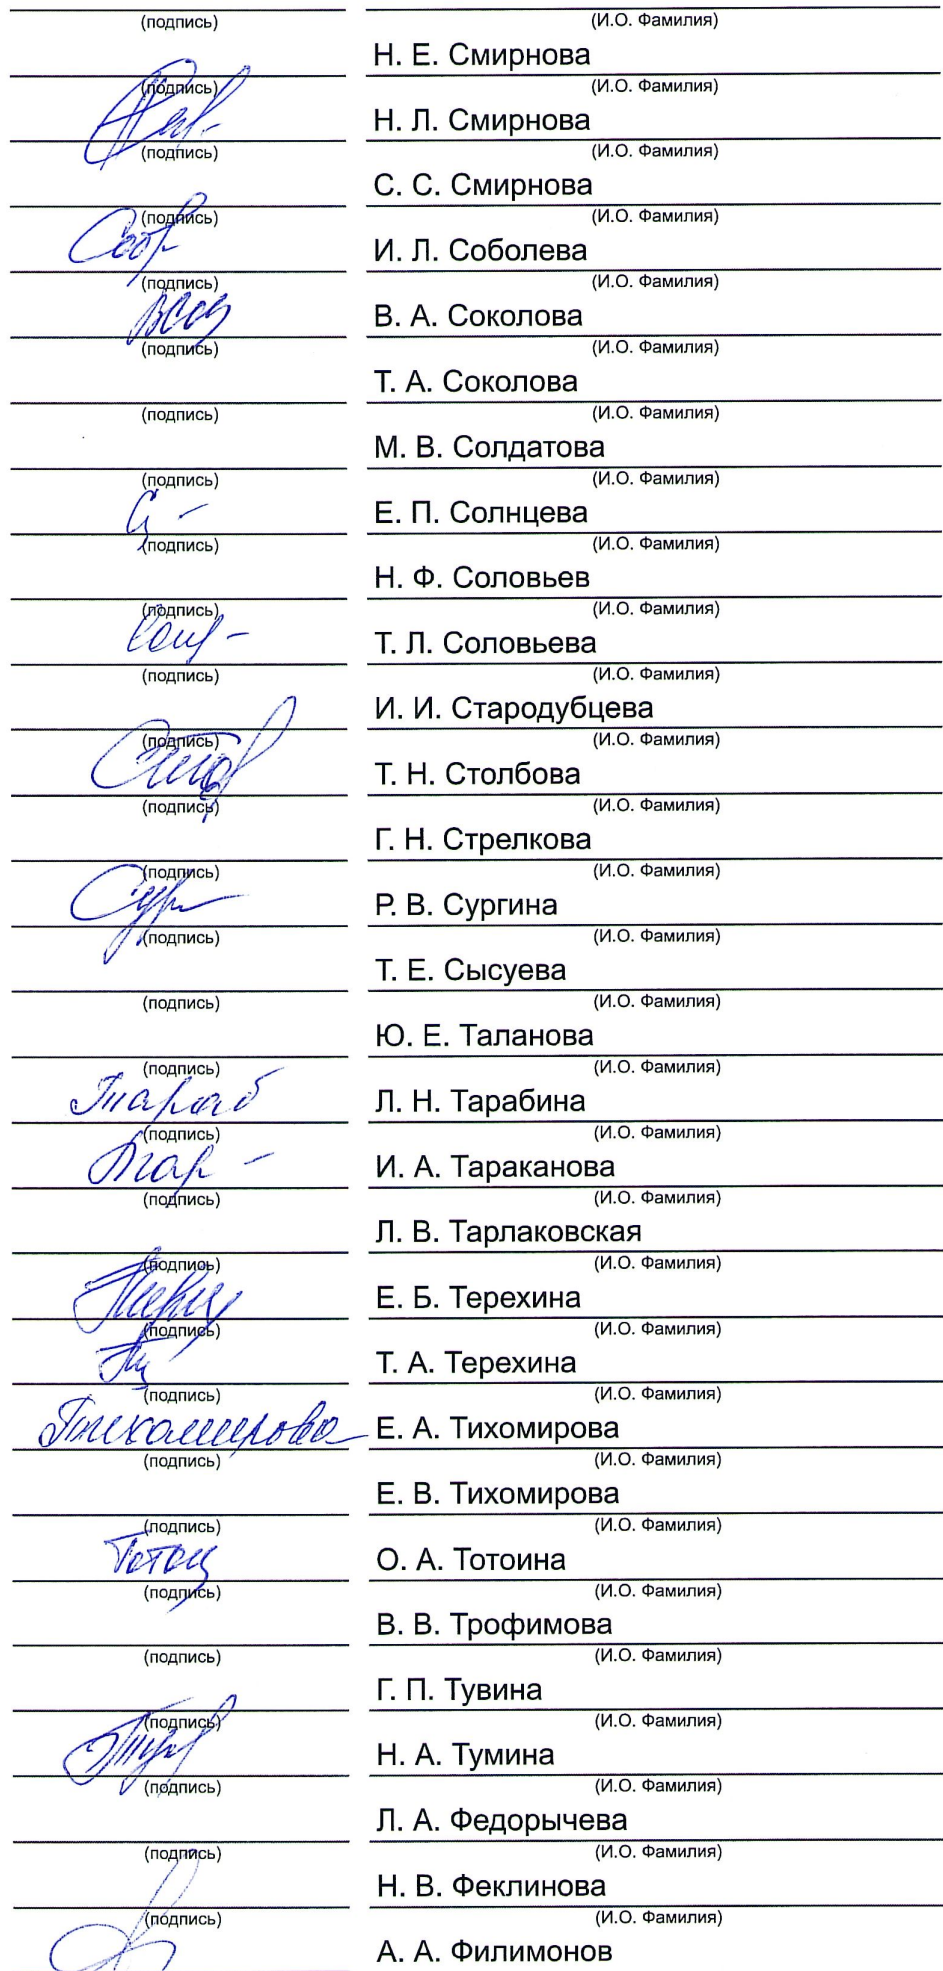 (подпись) (И.О. Фамилия)
Н. Е. Смирнова
(подпись) (И.О. Фамилия)
Н. Л. Смирнова
(подпись) (И.О. Фамилия)
С. С. Смирнова
(подпись) (И.О. Фамилия)
И. Л. Соболева
(подпись) (И.О. Фамилия)
В. А. Соколова
(подпись) (И.О. Фамилия)
Т. А. Соколова
(подпись) (И.О. Фамилия)
М. В. Солдатова
(подпись) (И.О. Фамилия)
Е. П. Солнцева
(подпись) (И.О. Фамилия)
Н. Ф. Соловьев
(подпись) (И.О. Фамилия)
Т. Л. Соловьева
(подпись) (И.О. Фамилия)
И. И. Стародубцева
(подпись) (И.О. Фамилия)
Т. Н. Столбова
(подпись) (И.О. Фамилия)
Г. Н. Стрелкова
(подпись) (И.О. Фамилия)
Р. В. Сургина
(подпись) (И.О. Фамилия)
Т. Е. Сысуева
(подпись) (И.О. Фамилия)
Ю. Е. Таланова
(подпись) (И.О. Фамилия)
Тараб Л. Н. Тарабина
(подпись) (И.О. Фамилия)
И. А. Тараканова
(подпись) (И.О. Фамилия)
Л. В. Тарлаковская
(подпись) (И.О. Фамилия)
Е. Б. Терехина
(подпись) (И.О. Фамилия)
Т. А. Терехина
(подпись) (И.О. Фамилия)
Тихомирова Е. А. Тихомирова
(подпись) (И.О. Фамилия)
Е. В. Тихомирова
(подпись) (И.О. Фамилия)
О. А. Тотоина
(подпись) (И.О. Фамилия)
В. В. Трофимова
(подпись) (И.О. Фамилия)
Г. П. Тувина
(подпись) (И.О. Фамилия)
Н. А. Тумина
(подпись) (И.О. Фамилия)
Л. А. Федорычева
(подпись) (И.О. Фамилия)
Н. В. Феклинова
(подпись) (И.О. Фамилия)
А. А. Филимонов